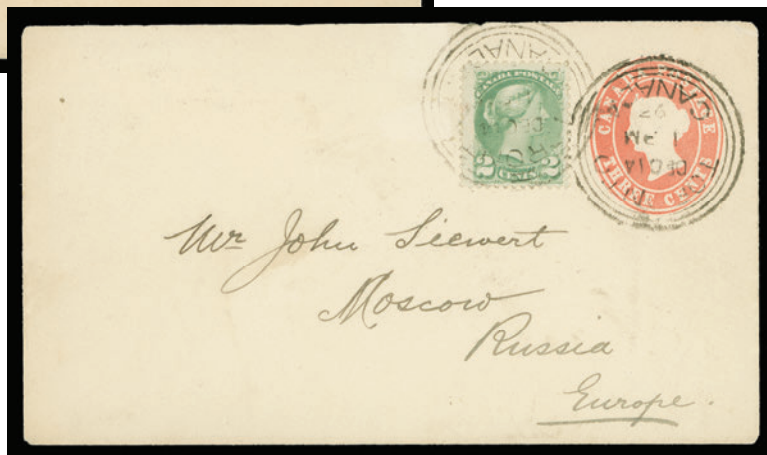 CANADA POSTAGE
2 CENTS 2
CANADA POSTAGE
THREE CENTS
CANADA
DEC 14
1 PM
92
Mr John Siewert
Moscow
Russia
Europe.